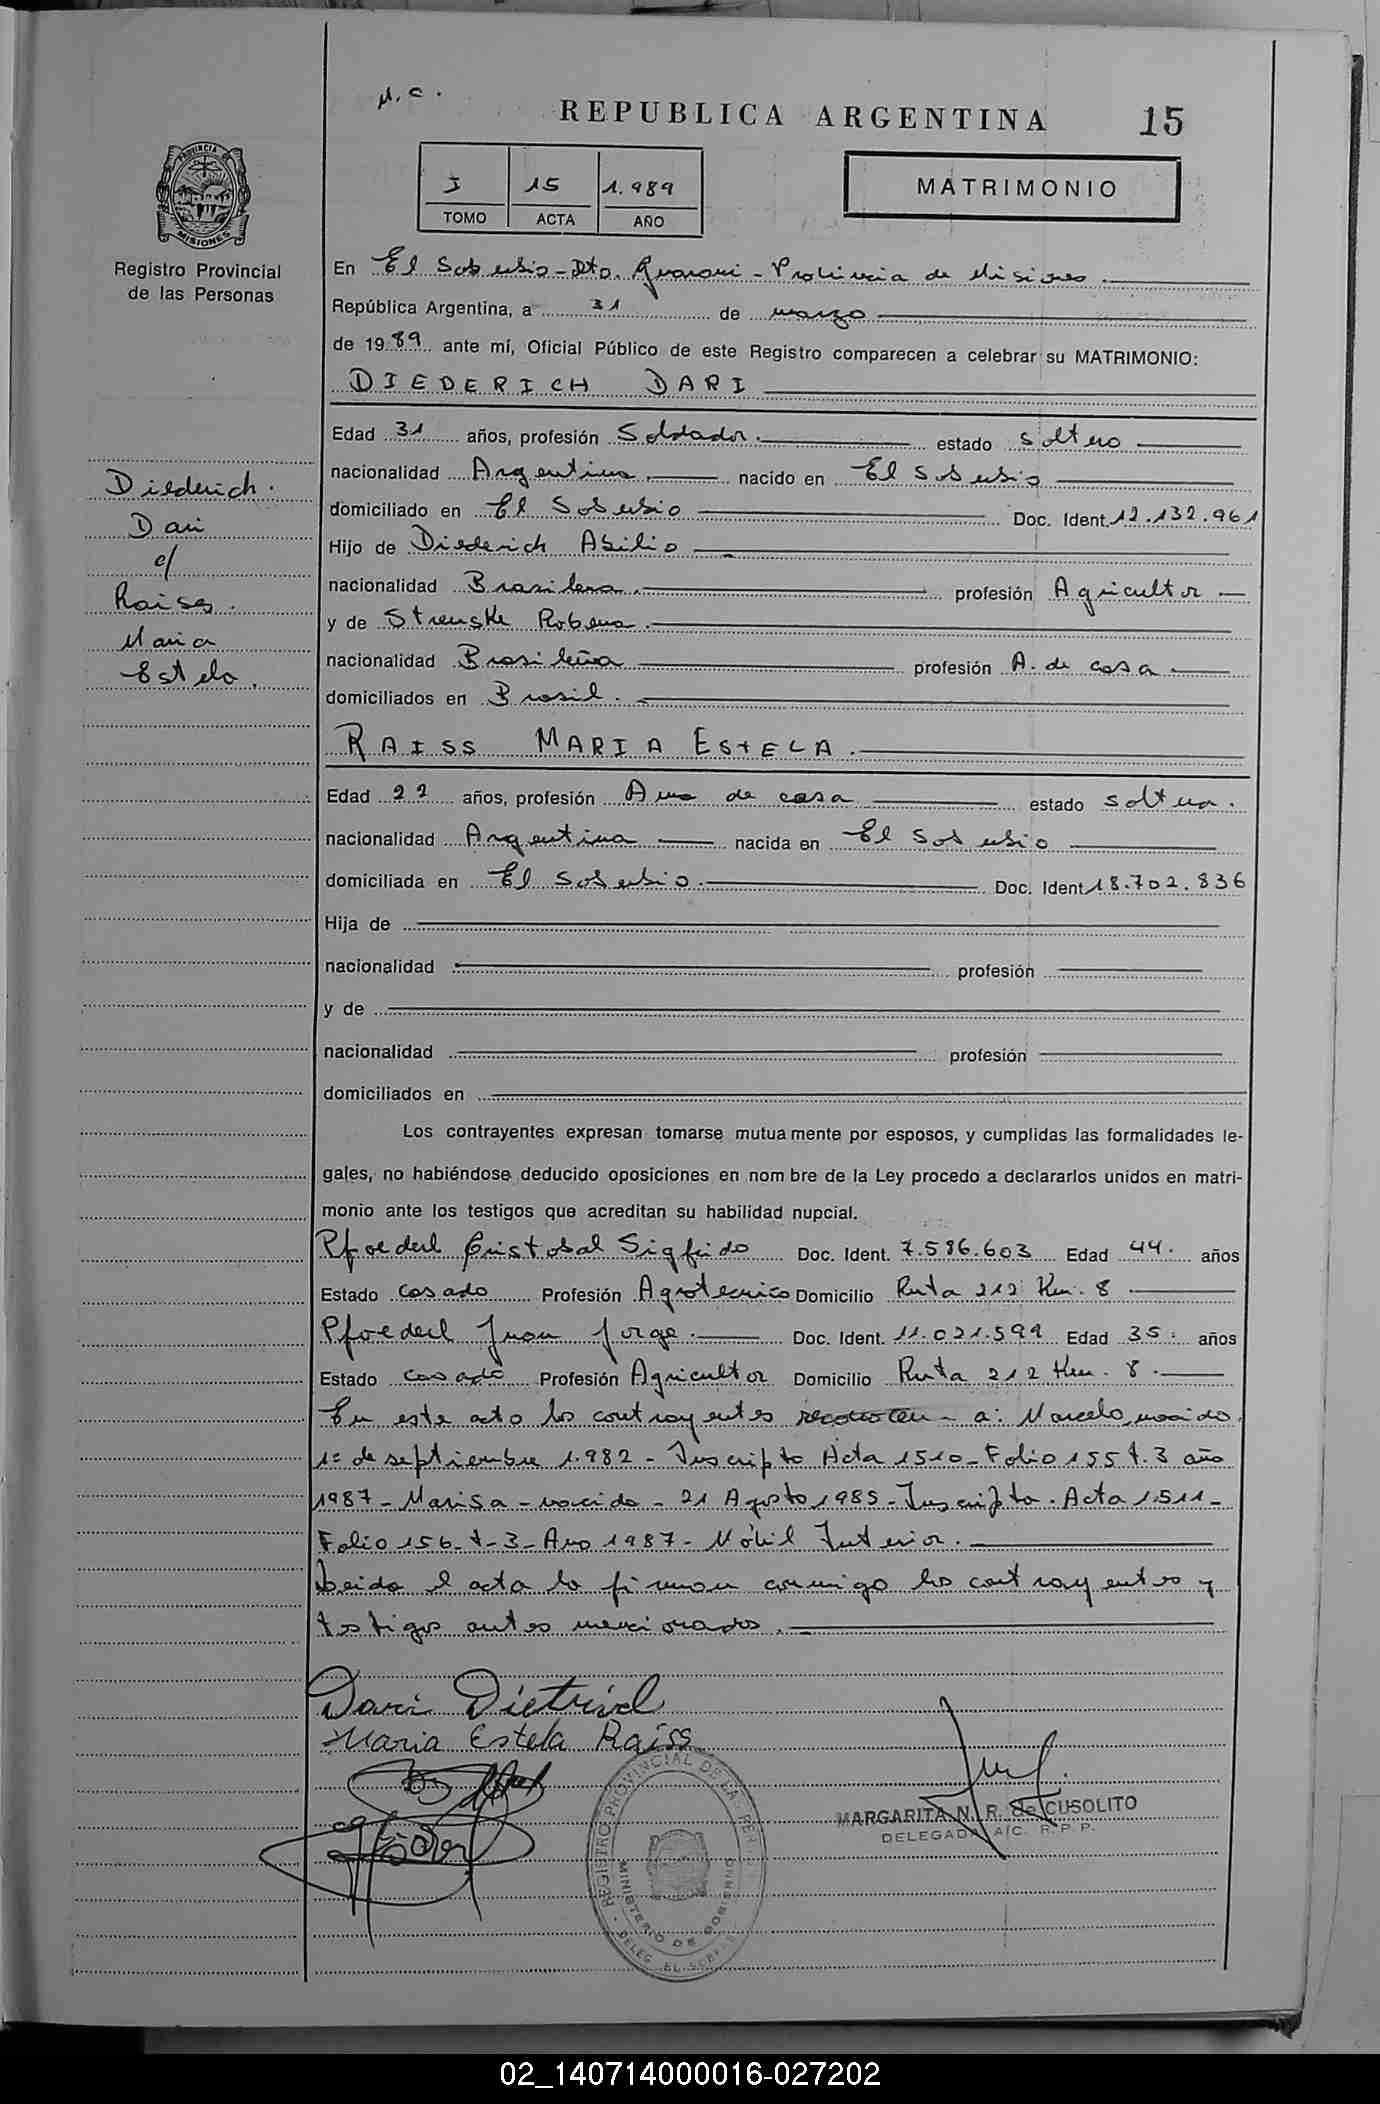 M.C.
REPUBLICA ARGENTINA 15
I 15 1.989
TOMO ACTA AÑO
MATRIMONIO
PROVINCIA DE MISIONES
Registro Provincial
de las Personas
En El Soberbio - Dto. Guarani - Provincia de Misiones.
República Argentina, a 31 de marzo
de 1989 ante mí, Oficial Público de este Registro comparecen a celebrar su MATRIMONIO:
DIEDERICH DARI
Edad 31 años, profesión Soldador. estado soltero
nacionalidad Argentina nacido en El Soberbio
domiciliado en El Soberbio Doc. Ident. 12.132.961
Hijo de Diederich Abilio
nacionalidad Brasilera. profesión Agricultor
y de Strenske
nacionalidad Brasileña profesión A. de casa
domiciliados en Brasil.
Diederich.
Dari
c/
Raiss.
Maria
Estela.
RAISS MARIA ESTELA.
Edad 22 años, profesión Ama de casa estado soltera.
nacionalidad Argentina nacida en El Soberbio
domiciliada en El Soberbio. Doc. Ident. 18.702.836
Hija de
nacionalidad profesión
y de
nacionalidad profesión
domiciliados en
Los contrayentes expresan tomarse mutuamente por esposos, y cumplidas las formalidades le-
gales, no habiéndose deducido oposiciones en nombre de la Ley procedo a declararlos unidos en matri-
monio ante los testigos que acreditan su habilidad nupcial.
Pfoederl Cristobal Sigfrido Doc. Ident. 7.586.603 Edad 44. años
Estado casado Profesión Agrotecnico Domicilio Ruta 212 Km. 8
Pfoederl Juan Jorge. Doc. Ident. 11.021.599 Edad 35. años
Estado casado Profesión Agricultor Domicilio Ruta 212 Km. 8.
En este acto los contrayentes reconocen a: Marcelo, nacido
1º de septiembre 1.982 - Inscripto Acta 1510 - Folio 155 t. 3 año
1987 - Marisa - nacida - 21 Agosto 1985 - Inscripta. Acta 1511 -
Folio 156 - t - 3 - Año 1987 - Móvil Interior.
Leida el acta la firman conmigo los contrayentes y
testigos antes mencionados.
Dari Dietrich
Maria Estela Raiss
REGISTRO PROVINCIAL DE LAS PERS
MINISTERIO DE GOBIERNO
DELEG. EL SOBER
MARGARITA N. R. de CUSOLITO
DELEGADA A/C. R. P. P.
02_140714000016-027202